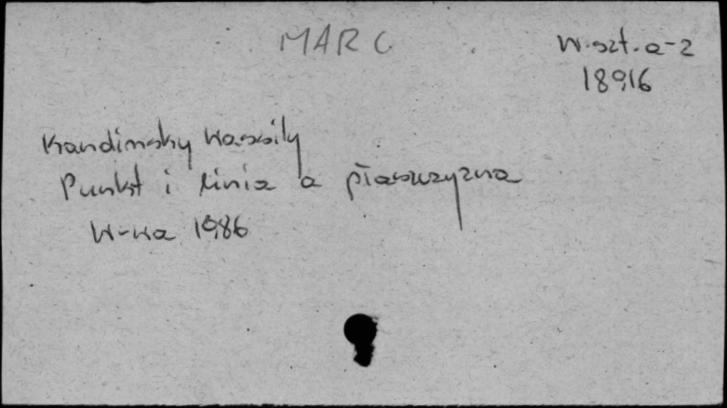 MARC
W.szt.a-z
18916
Kandinsky Wassily
Punkt i linia a płaszczyzna
W-wa 1986